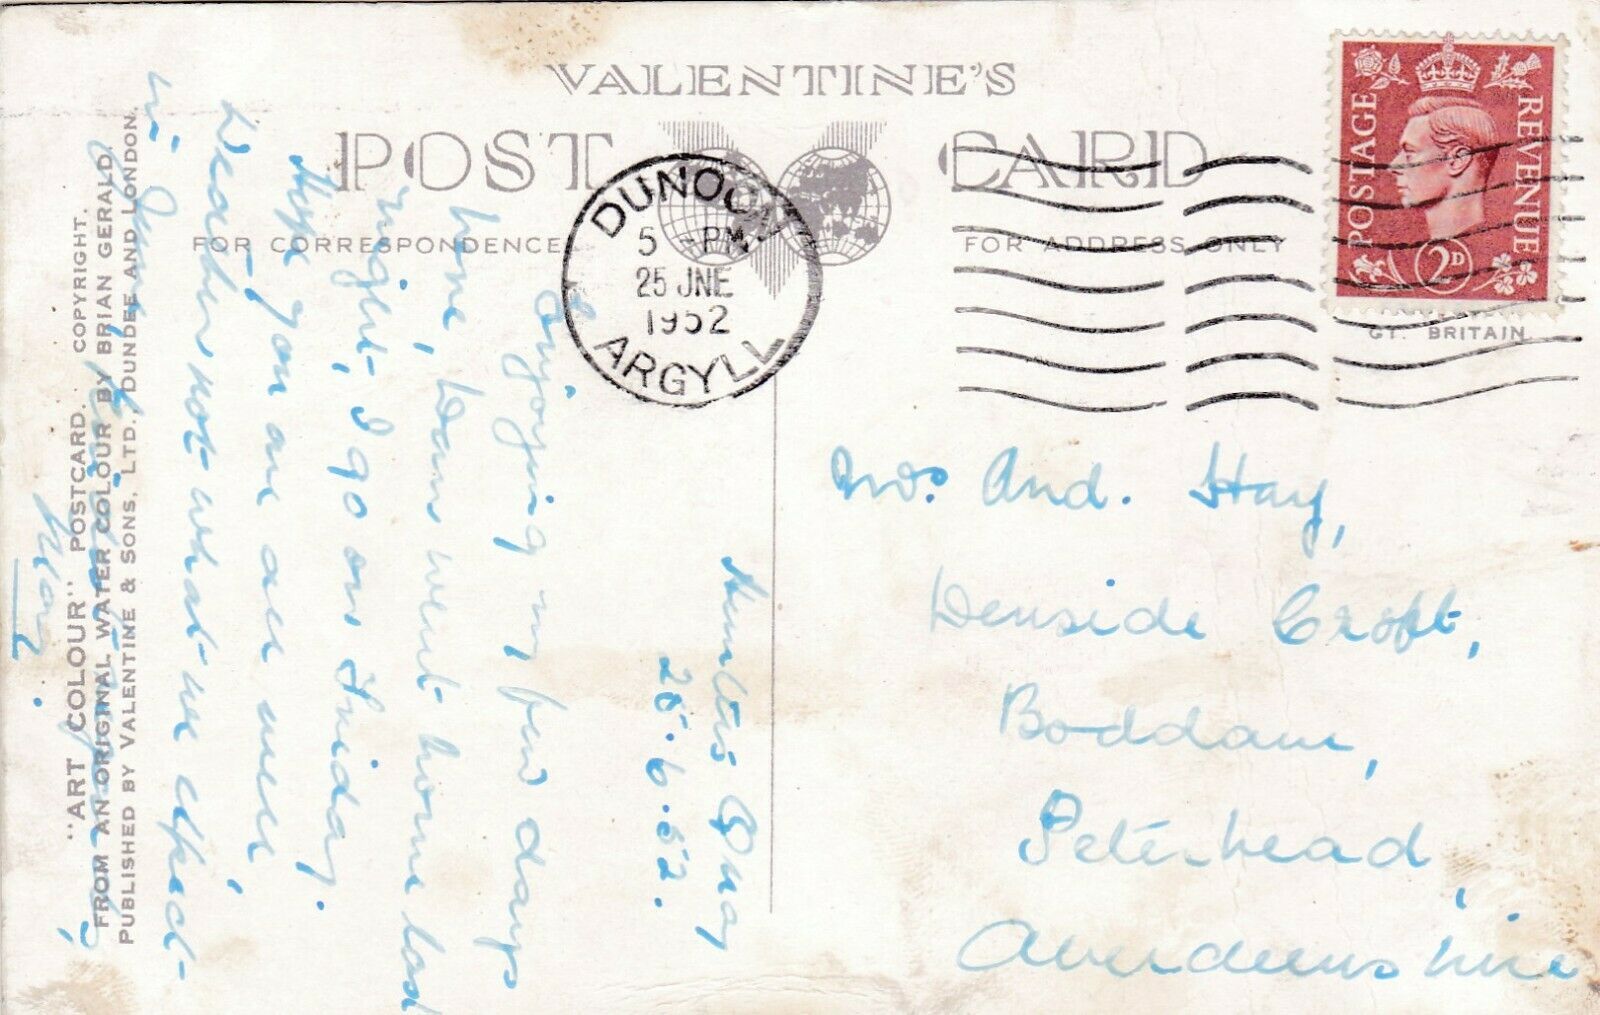 VALENTINE'S
POST CARD
FOR CORRESPONDENCE
FOR ADDRESS ONLY
POSTAGE
REVENUE
2D
GT. BRITAIN
DUNOON
5 - PM
25 JNE
1952
ARGYLL
Hunters Quay
25.6.52.
Enjoying my few days
here, Dam went home last
night, I go on Friday.
Hope you are all well,
Weather not what we expect
in June,
May.
And. Hay,
Denside Croft,
Boddam,
Peterhead,
Aberdeenshire
"ART COLOUR" POSTCARD. COPYRIGHT.
FROM AN ORIGINAL WATER COLOUR BY BRIAN GERALD
PUBLISHED BY VALENTINE & SONS, LTD., DUNDEE AND LONDON.